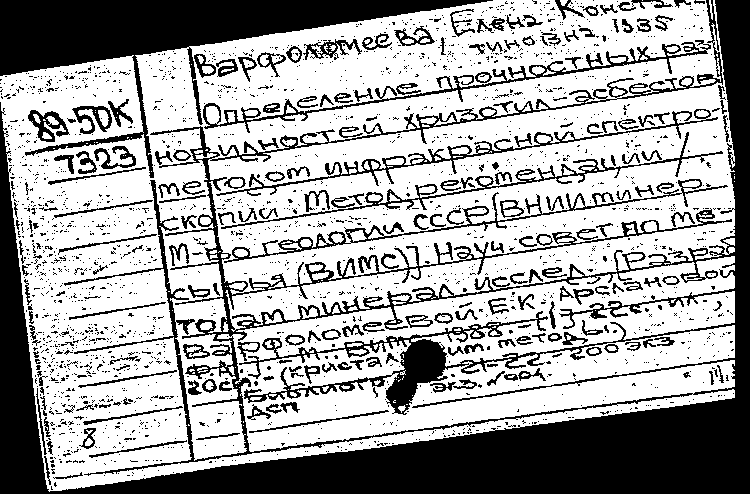 Варфоломеева, Елена Констан-
тиновна, 1935
89-5DK
7323
Определение прочностных раз-
новидностей хризотил-асбестов
методом инфракрасной спектро-
скопии: Метод. рекомендации /
М-во геологии СССР, [ВНИИ минер.
сырья (ВИМС)]. Науч. совет по ме-
тодам минерал. исслед.; [Разраб
Варфоломеевой Е.К. Арслановой
Ф.А.]. - М.: ВИМС, 1988. - [1] 22 с.: ил.;
20 см. - (кристал им. методы.)
Библиогр 21-22 - 200 экз
ДСП экз. №904.
8